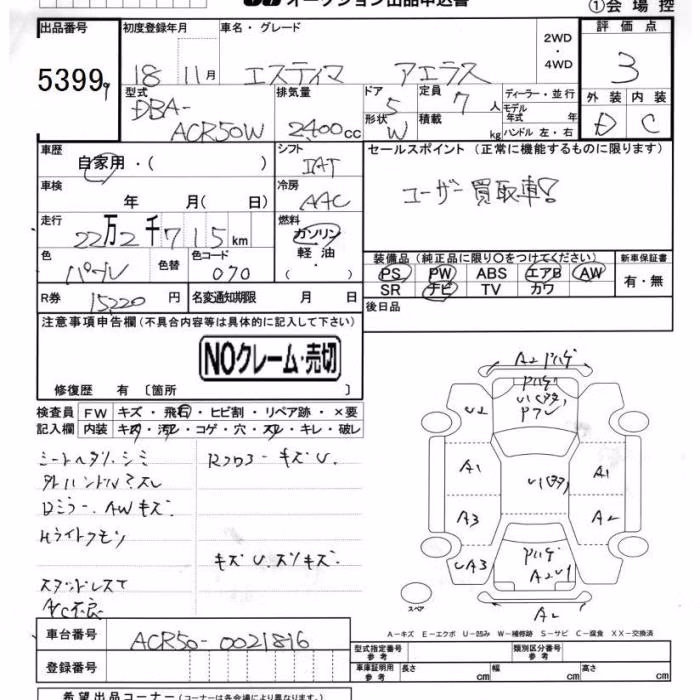 オークション出品申込書 ①会場控
出品番号 初度登録年月 車名・グレード 評価点
5399 18 11月 エスティマ アエラス 2WD・4WD 3
型式 排気量 ドア 定員 ディーラー・並行 外装 内装
DBA- 5 7人 モデル年式 年 D C
ACR50W 2400cc 形状 W 積載 kg ハンドル 左・右
車歴 シフト セールスポイント (正常に機能するものに限ります)
自家用・( ) IAT
車検 冷房 ユーザー買取車!
年 月( 日) AAC
走行 燃料
22万2千715km ガソリン
軽油
( ・ )
色 色替 色コード 装備品 (純正品に限り○をつけてください) 新車保証書
パープル 070 PS PW ABS エアB AW 有・無
SR ナビ TV カワ
R券 15220円 名変通知期限 月 日 後日品
注意事項申告欄 (不具合内容等は具体的に記入して下さい)
NOクレーム・売切
修復歴 有 〔箇所 〕
検査員 FW キズ・飛石・ヒビ割・リペア跡・×要
記入欄 内装 キズ・汚レ・コゲ・穴・スレ・キレ・破レ
シートヘタリ、シミ RフロアーキズU.
ハンドルスレ
Dミラー、AWキズ
Hライトクモリ
キズU.スリキズ
スタッドレスT
A/C不良
A2 ハゲ
U2 U1(多)
A1 U1(多) A1
A3 A2
UA3 A2U1
スペア A2
A-キズ E-エクボ U-凹み W-補修跡 S-サビ C-腐食 XX-交換済
車台番号 ACR50-0021816 型式指定番号 参考 類別区分番号 参考
登録番号 車庫証明用 参考 長さ cm 幅 cm 高さ cm
希望出品コーナー (コーナーは各会場により異なります。)